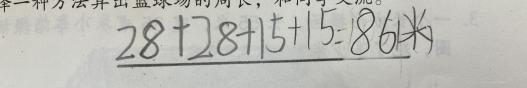 择一种方法算出篮球场的周长，和同学交流。
28+28+15+15=86(米)